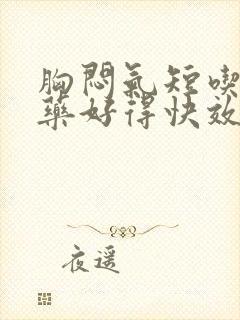 胸悶氣短喫
藥好得快效
夜遥